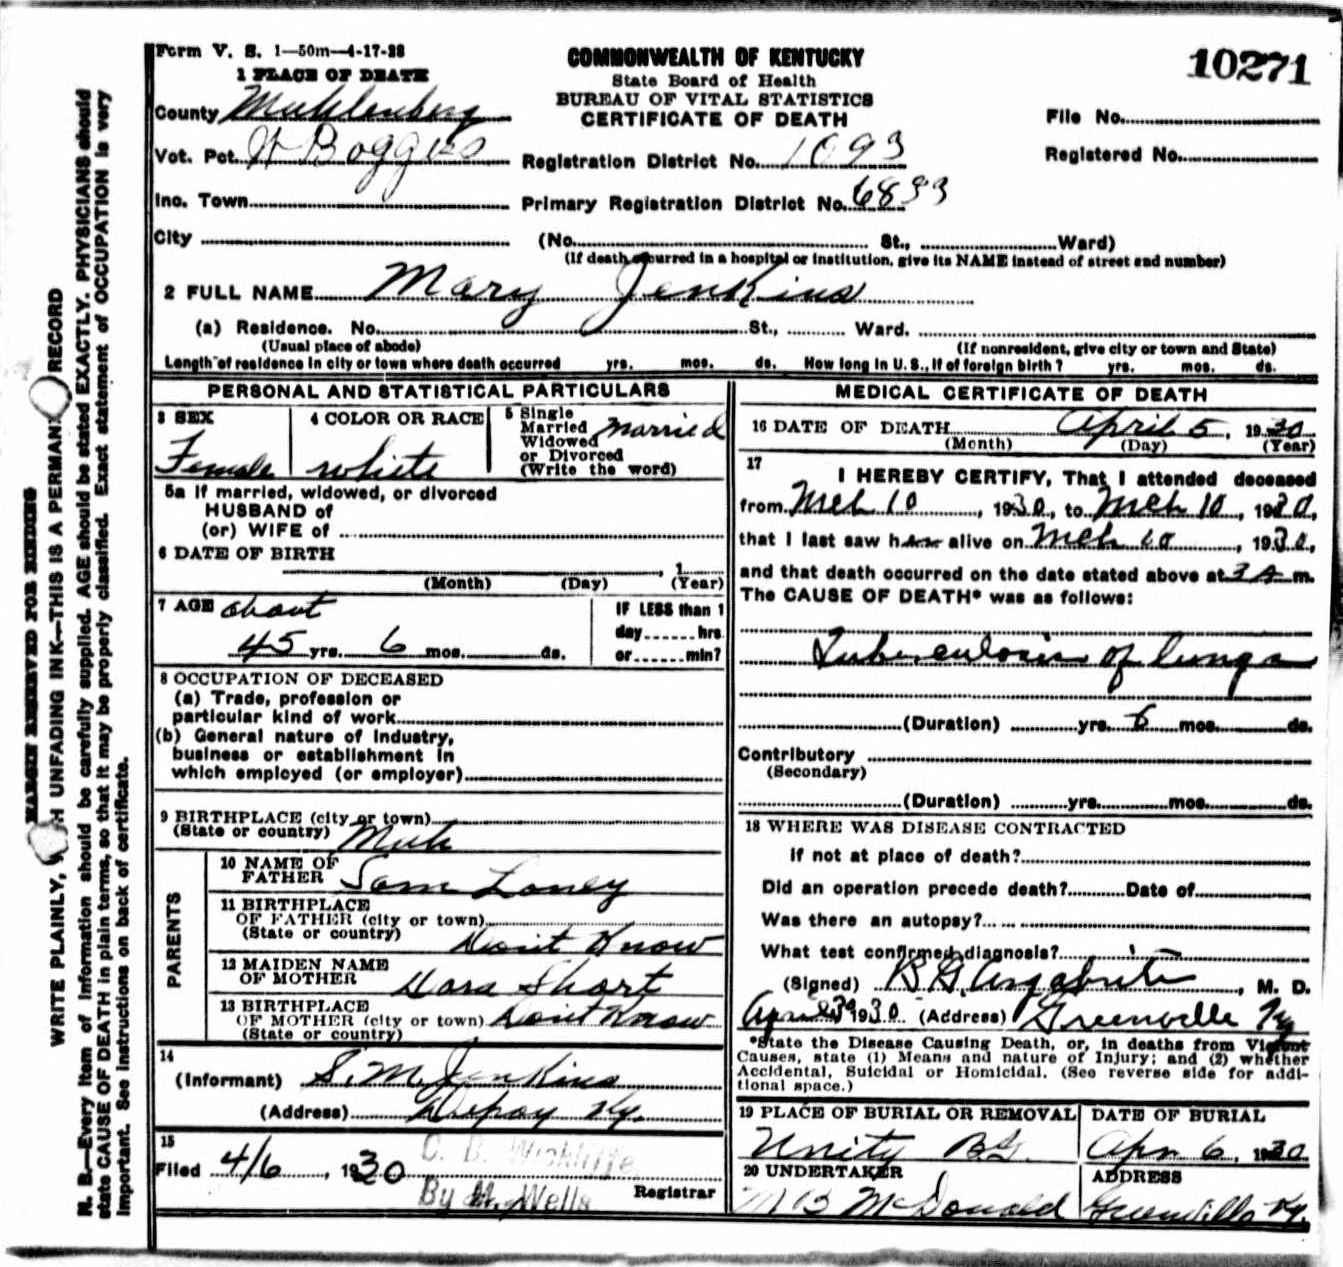 Form V. S. 1—50m—4-17-28
COMMONWEALTH OF KENTUCKY
State Board of Health
BUREAU OF VITAL STATISTICS
CERTIFICATE OF DEATH
10271
1 PLACE OF DEATH
County Muhlenberg
Vot. Pct. W Boggess
Inc. Town
City
Registration District No. 1093
Primary Registration District No. 6833
File No.
Registered No.
(No. St., Ward)
(If death occurred in a hospital or institution, give its NAME instead of street and number)
2 FULL NAME Mary Jenkins
(a) Residence. No. St., Ward.
(Usual place of abode) (If nonresident, give city or town and State)
Length of residence in city or town where death occurred yrs. mos. ds. How long in U. S., if of foreign birth? yrs. mos. ds.
PERSONAL AND STATISTICAL PARTICULARS
3 SEX Female
4 COLOR OR RACE white
5 Single Married Widowed or Divorced (Write the word) Married
5a If married, widowed, or divorced
HUSBAND of
(or) WIFE of
6 DATE OF BIRTH
, 1
(Month) (Day) (Year)
7 AGE about
45 yrs. 6 mos. ds.
IF LESS than 1
day hrs
or min?
8 OCCUPATION OF DECEASED
(a) Trade, profession or
particular kind of work
(b) General nature of industry,
business or establishment in
which employed (or employer)
9 BIRTHPLACE (city or town)
(State or country) Muh
PARENTS
10 NAME OF FATHER Sam Laney
11 BIRTHPLACE
OF FATHER (city or town)
(State or country) Don't Know
12 MAIDEN NAME
OF MOTHER Dora Short
13 BIRTHPLACE
OF MOTHER (city or town) Don't Know
(State or country)
14
(Informant) S. M. Jenkins
(Address) Depoy Ky.
15
Filed 4/6, 1930
C. B. Wickliffe
By M. Wells
Registrar
MEDICAL CERTIFICATE OF DEATH
16 DATE OF DEATH April 5, 1930
(Month) (Day) (Year)
17
I HEREBY CERTIFY, That I attended deceased
from Mch 10, 1930, to Mch 10, 1930,
that I last saw her alive on Mch 10, 1930,
and that death occurred on the date stated above at 3 A m.
The CAUSE OF DEATH* was as follows:
Tuberculosis of lungs
(Duration) yrs. 6 mos. ds.
Contributory
(Secondary)
(Duration) yrs. mos. ds.
18 WHERE WAS DISEASE CONTRACTED
If not at place of death?
Did an operation precede death? Date of
Was there an autopay?
What test confirmed diagnosis?
(Signed) B. G. Argabrite, M. D.
1930 (Address) Greenville Ky
*State the Disease Causing Death, or, in deaths from Violent
Causes, state (1) Means and nature of Injury; and (2) whether
Accidental, Suicidal or Homicidal. (See reverse side for addi-
tional space.)
19 PLACE OF BURIAL OR REMOVAL
Unity
DATE OF BURIAL
Apr 6, 1930
20 UNDERTAKER
M B McDonald
ADDRESS
Greenville Ky.
MARGIN RESERVED FOR BINDING
WRITE PLAINLY, UNFADING INK—THIS IS A PERMAN RECORD
N. B.—Every item of information should be carefully supplied. AGE should be stated EXACTLY. PHYSICIANS should
state CAUSE OF DEATH in plain terms, so that it may be properly classified. Exact statement of OCCUPATION is very
important. See instructions on back of certificate.